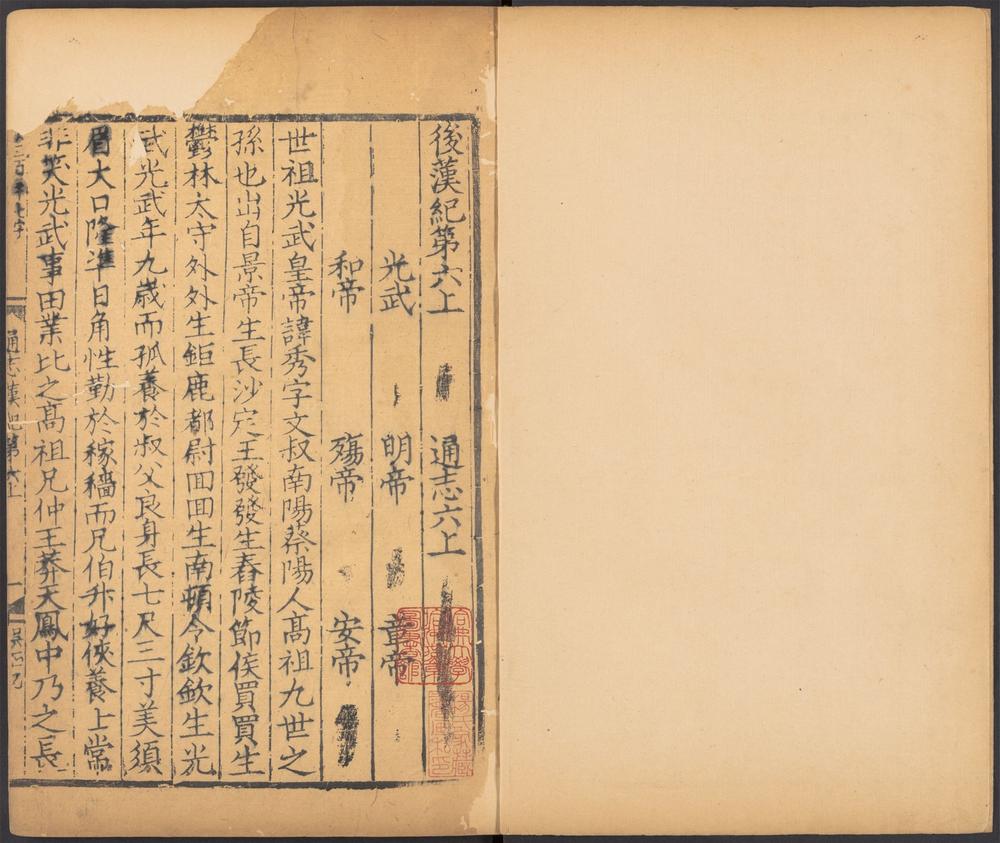 後漢紀第六上　通志六上
光武　明帝　章帝
和帝　殤帝　安帝
世祖光武皇帝諱秀字文叔南陽蔡陽人高祖九世之
孫也出自景帝生長沙定王發發生舂陵節侯買買生
鬱林太守外外生鉅鹿都尉回回生南頓令欽欽生光
武光武年九歲而孤養於叔父良身長七尺三寸美須
眉大口隆準日角性勤於稼穡而兄伯升好俠養上常
非笑光武事田業比之高祖兄仲王莽天鳳中乃之長
通志漢紀第六上